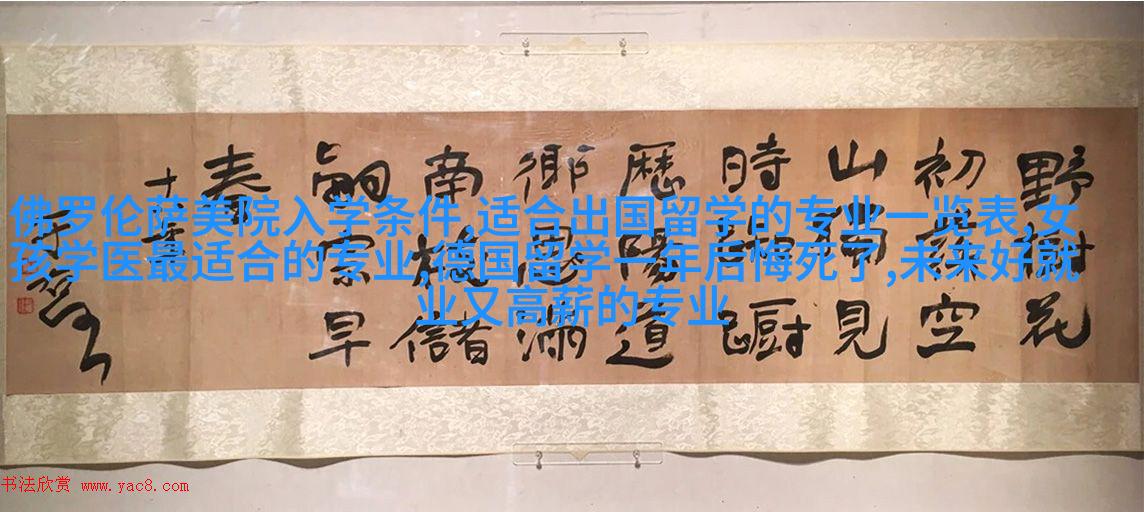 佛罗伦萨美院入学条件,适合出国留学的专业一览表,女
孩学医最适合的专业,德国留学一年后悔死了,未来好就
业又高薪的专业
野樹花
初落空
山獨見
時踟蹰
歷陽道
鄉思滿
南枝儲
嗣宗早
春
书法欣赏 www.yac8.com